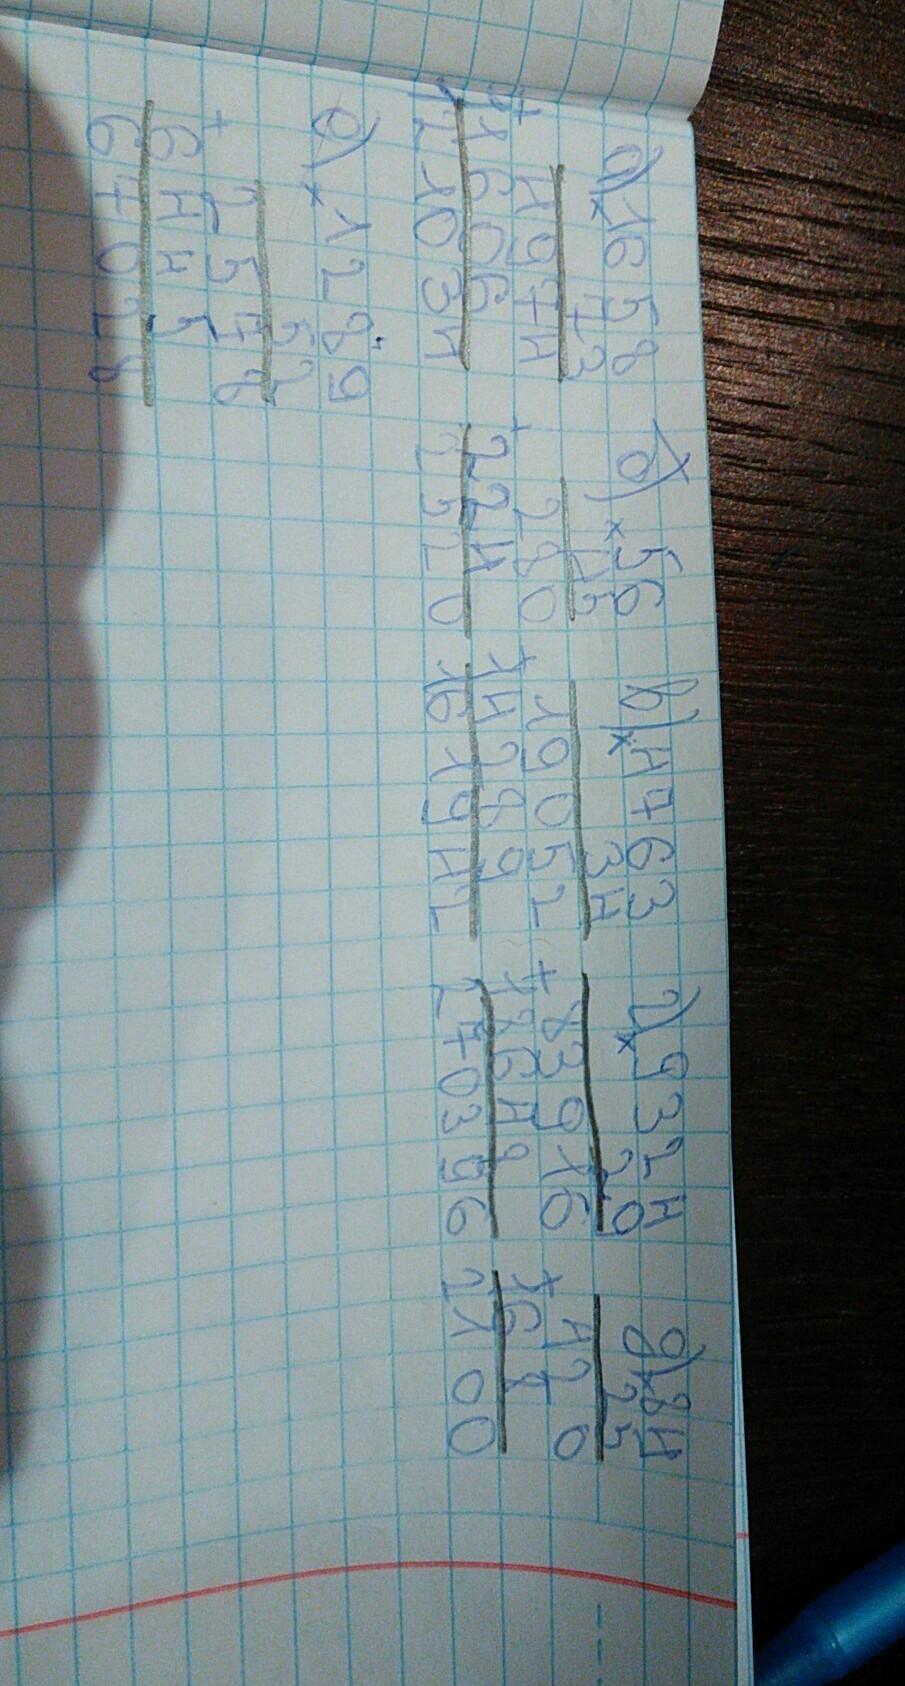 а) × 1658 б) × 56 в) × 4763 г) × 9324 д) × 84
73 45 34 29 25
4974 280 19052 83916 420
+ 11606 + 224 + 14289 + 18648 + 168
121034 2520 161942 270396 2100
е) × 1289
52
2578
+ 6445
67028